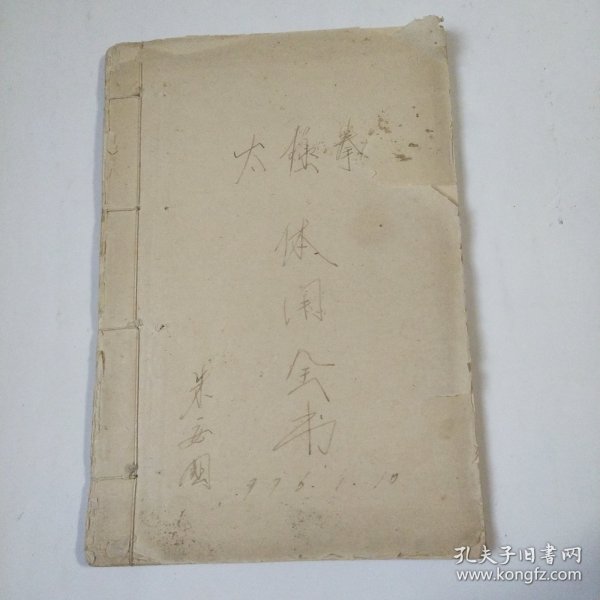 太極拳
体用全书
朱安國
1976.1.10
孔夫子旧書网
www.kongfz.com